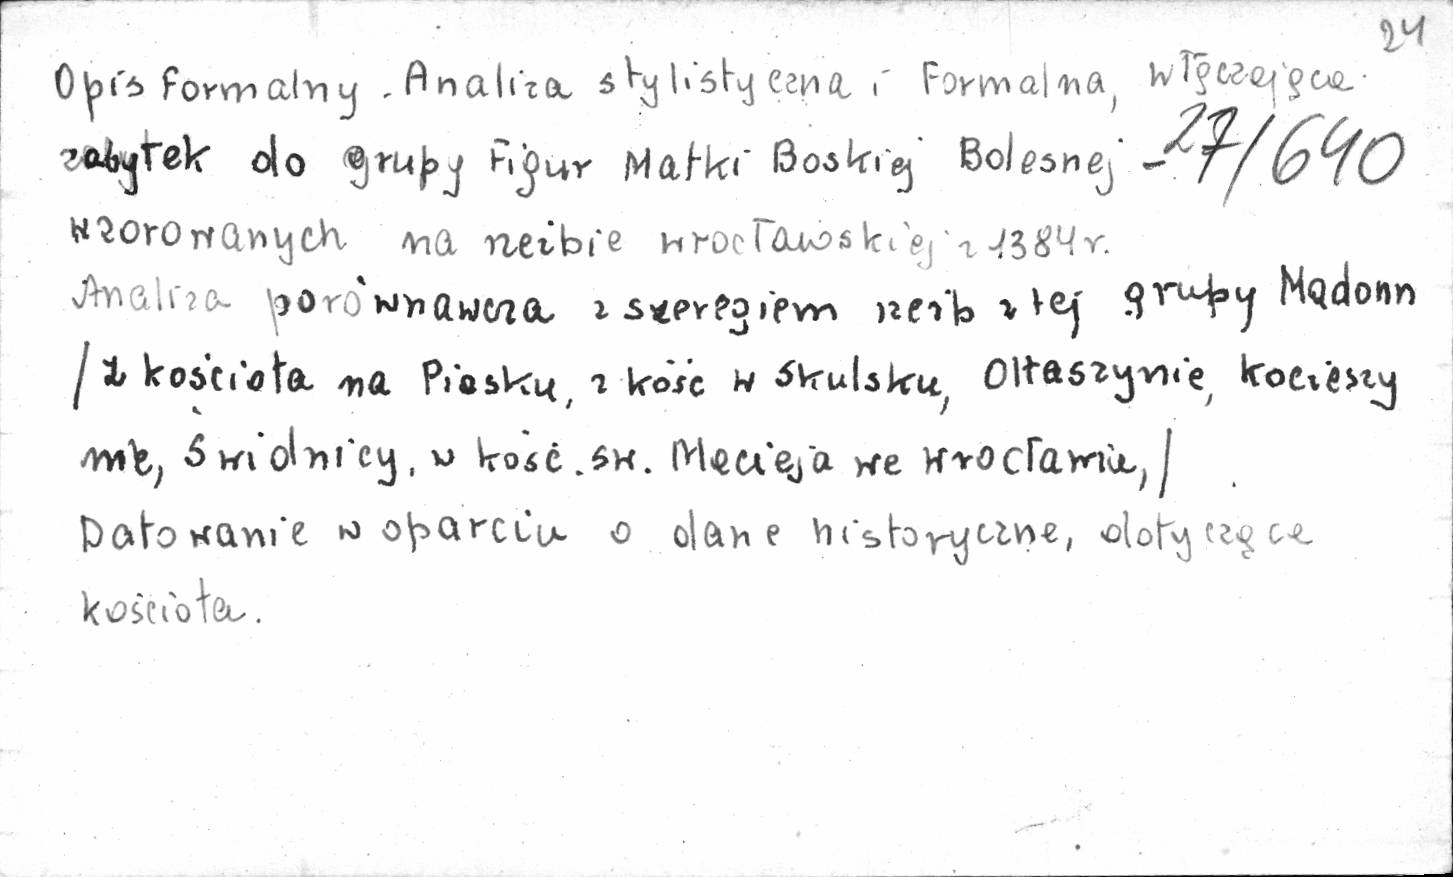 24
Opis formalny. Analiza stylistyczna i formalna, włączające
zabytek do grupy figur Matki Boskiej Bolesnej - 27/640
wzorowanych na rzeźbie wrocławskiej z 1384 r.
Analiza porównawcza z szeregiem rzeźb z tej grupy Madonn
/z kościoła na Piasku, z kość w Skulsku, Ołtaszynie, Kocieszy
nie, Świdnicy, w kość. św. Macieja we Wrocławiu,/
Datowanie w oparciu o dane historyczne, dotyczące
kościoła.